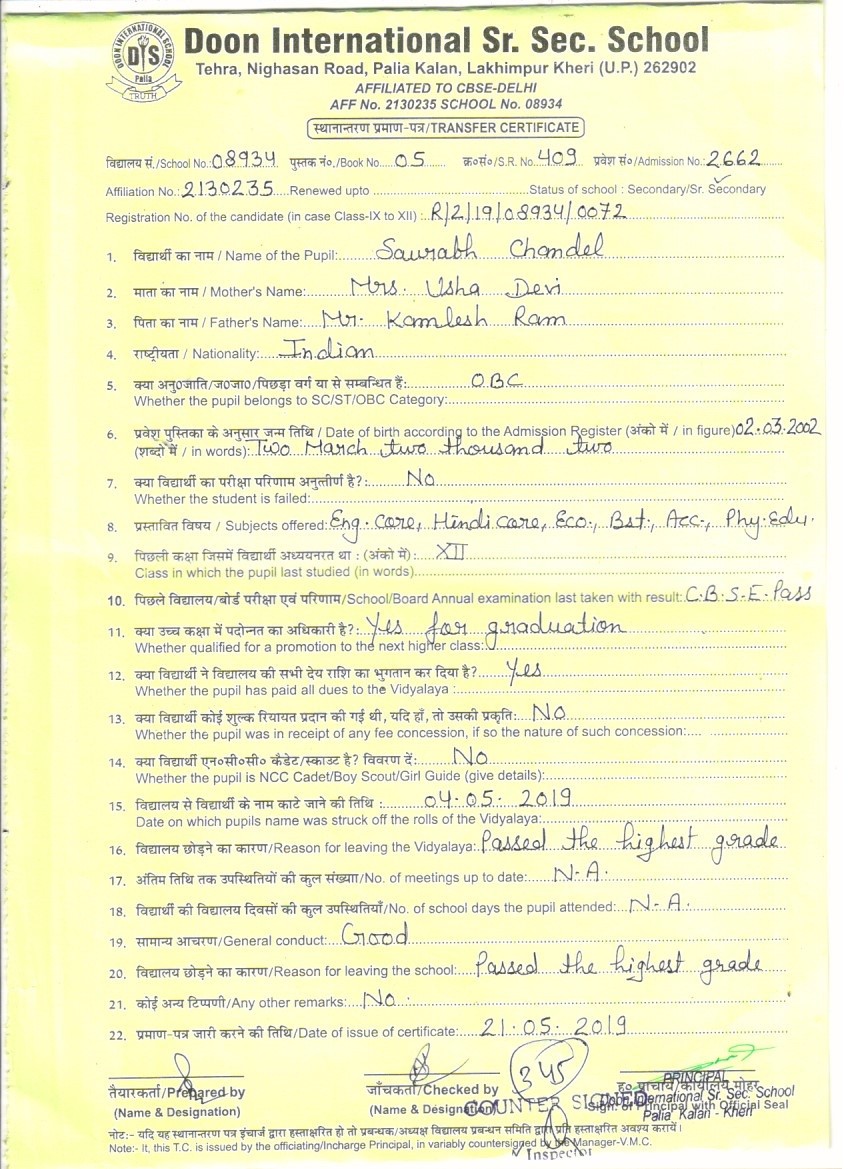 DOON INTERNATIONAL SCHOOL
DIS
Palia
TRUTH
Doon International Sr. Sec. School
Tehra, Nighasan Road, Palia Kalan, Lakhimpur Kheri (U.P.) 262902
AFFILIATED TO CBSE-DELHI
AFF No. 2130235 SCHOOL No. 08934
स्थानान्तरण प्रमाण-पत्र/TRANSFER CERTIFICATE
विद्यालय सं./School No.:08934 पुस्तक नं०./Book No.....05..... क्र०सं०/S.R. No.409 प्रवेश सं०/Admission No.:2662
Affiliation No.:2130235 Renewed upto ........ Status of school : Secondary/Sr. Secondary
Registration No. of the candidate (in case Class-IX to XII) : R/2/19/08934/0072
1. विद्यार्थी का नाम / Name of the Pupil: Saurabh Chandel
2. माता का नाम / Mother's Name: Mrs. Usha Devi
3. पिता का नाम / Father's Name: Mr. Kamlesh Ram
4. राष्ट्रीयता / Nationality: Indian
5. क्या अनु०जाति/ज०जा०/पिछड़ा वर्ग या से सम्बन्धित हैं: OBC
Whether the pupil belongs to SC/ST/OBC Category:
6. प्रवेश पुस्तिका के अनुसार जन्म तिथि / Date of birth according to the Admission Register (अंको में / in figure) 02.03.2002
(शब्दों में / in words): Two March two thousand two
7. क्या विद्यार्थी का परीक्षा परिणाम अनुत्तीर्ण है?: No
Whether the student is failed:
8. प्रस्तावित विषय / Subjects offered: Eng. Core, Hindi core, Eco., Bst., Acc., Phy. Edu.
9. पिछली कक्षा जिसमें विद्यार्थी अध्ययनरत था : (अंको में) : XII
Class in which the pupil last studied (in words)
10. पिछले विद्यालय/बोर्ड परीक्षा एवं परिणाम/School/Board Annual examination last taken with result: C.B.S.E. Pass
11. क्या उच्च कक्षा में पदोन्नत का अधिकारी है?: Yes for graduation
Whether qualified for a promotion to the next higher class:
12. क्या विद्यार्थी ने विद्यालय की सभी देय राशि का भुगतान कर दिया है? Yes
Whether the pupil has paid all dues to the Vidyalaya :
13. क्या विद्यार्थी कोई शुल्क रियायत प्रदान की गई थी, यदि हाँ, तो उसकी प्रकृति: No
Whether the pupil was in receipt of any fee concession, if so the nature of such concession:
14. क्या विद्यार्थी एन०सी०सी० कैडेट/स्काउट है? विवरण दें: No
Whether the pupil is NCC Cadet/Boy Scout/Girl Guide (give details):
15. विद्यालय से विद्यार्थी के नाम काटे जाने की तिथि : 04.05.2019
Date on which pupils name was struck off the rolls of the Vidyalaya:
16. विद्यालय छोड़ने का कारण/Reason for leaving the Vidyalaya: Passed the highest grade
17. अंतिम तिथि तक उपस्थितियों की कुल संख्या/No. of meetings up to date: N.A.
18. विद्यार्थी की विद्यालय दिवसों की कुल उपस्थितियाँ/No. of school days the pupil attended: N.A.
19. सामान्य आचरण/General conduct: Good
20. विद्यालय छोड़ने का कारण/Reason for leaving the school: Passed the highest grade
21. कोई अन्य टिप्पणी/Any other remarks: No.
22. प्रमाण-पत्र जारी करने की तिथि/Date of issue of certificate: 21.05.2019
तैयारकर्ता/Prepared by
(Name & Designation)
जाँचकर्ता/Checked by
(Name & Designation)
345
COUNTER SIGNED
Inspector
PRINCIPAL
ह० प्राचार्य/कार्यालय मोहर
Doon International Sr. Sec. School
Sign. of Principal with Official Seal
Palia Kalan - Kheri
नोट:- यदि यह स्थानान्तरण पत्र इंचार्ज द्वारा हस्ताक्षरित हो तो प्रबन्धक/अध्यक्ष विद्यालय प्रबन्धन समिति द्वारा प्रति हस्ताक्षरित अवश्य करायें।
Note:- It, this T.C. is issued by the officiating/Incharge Principal, in variably countersigned by the Manager-V.M.C.